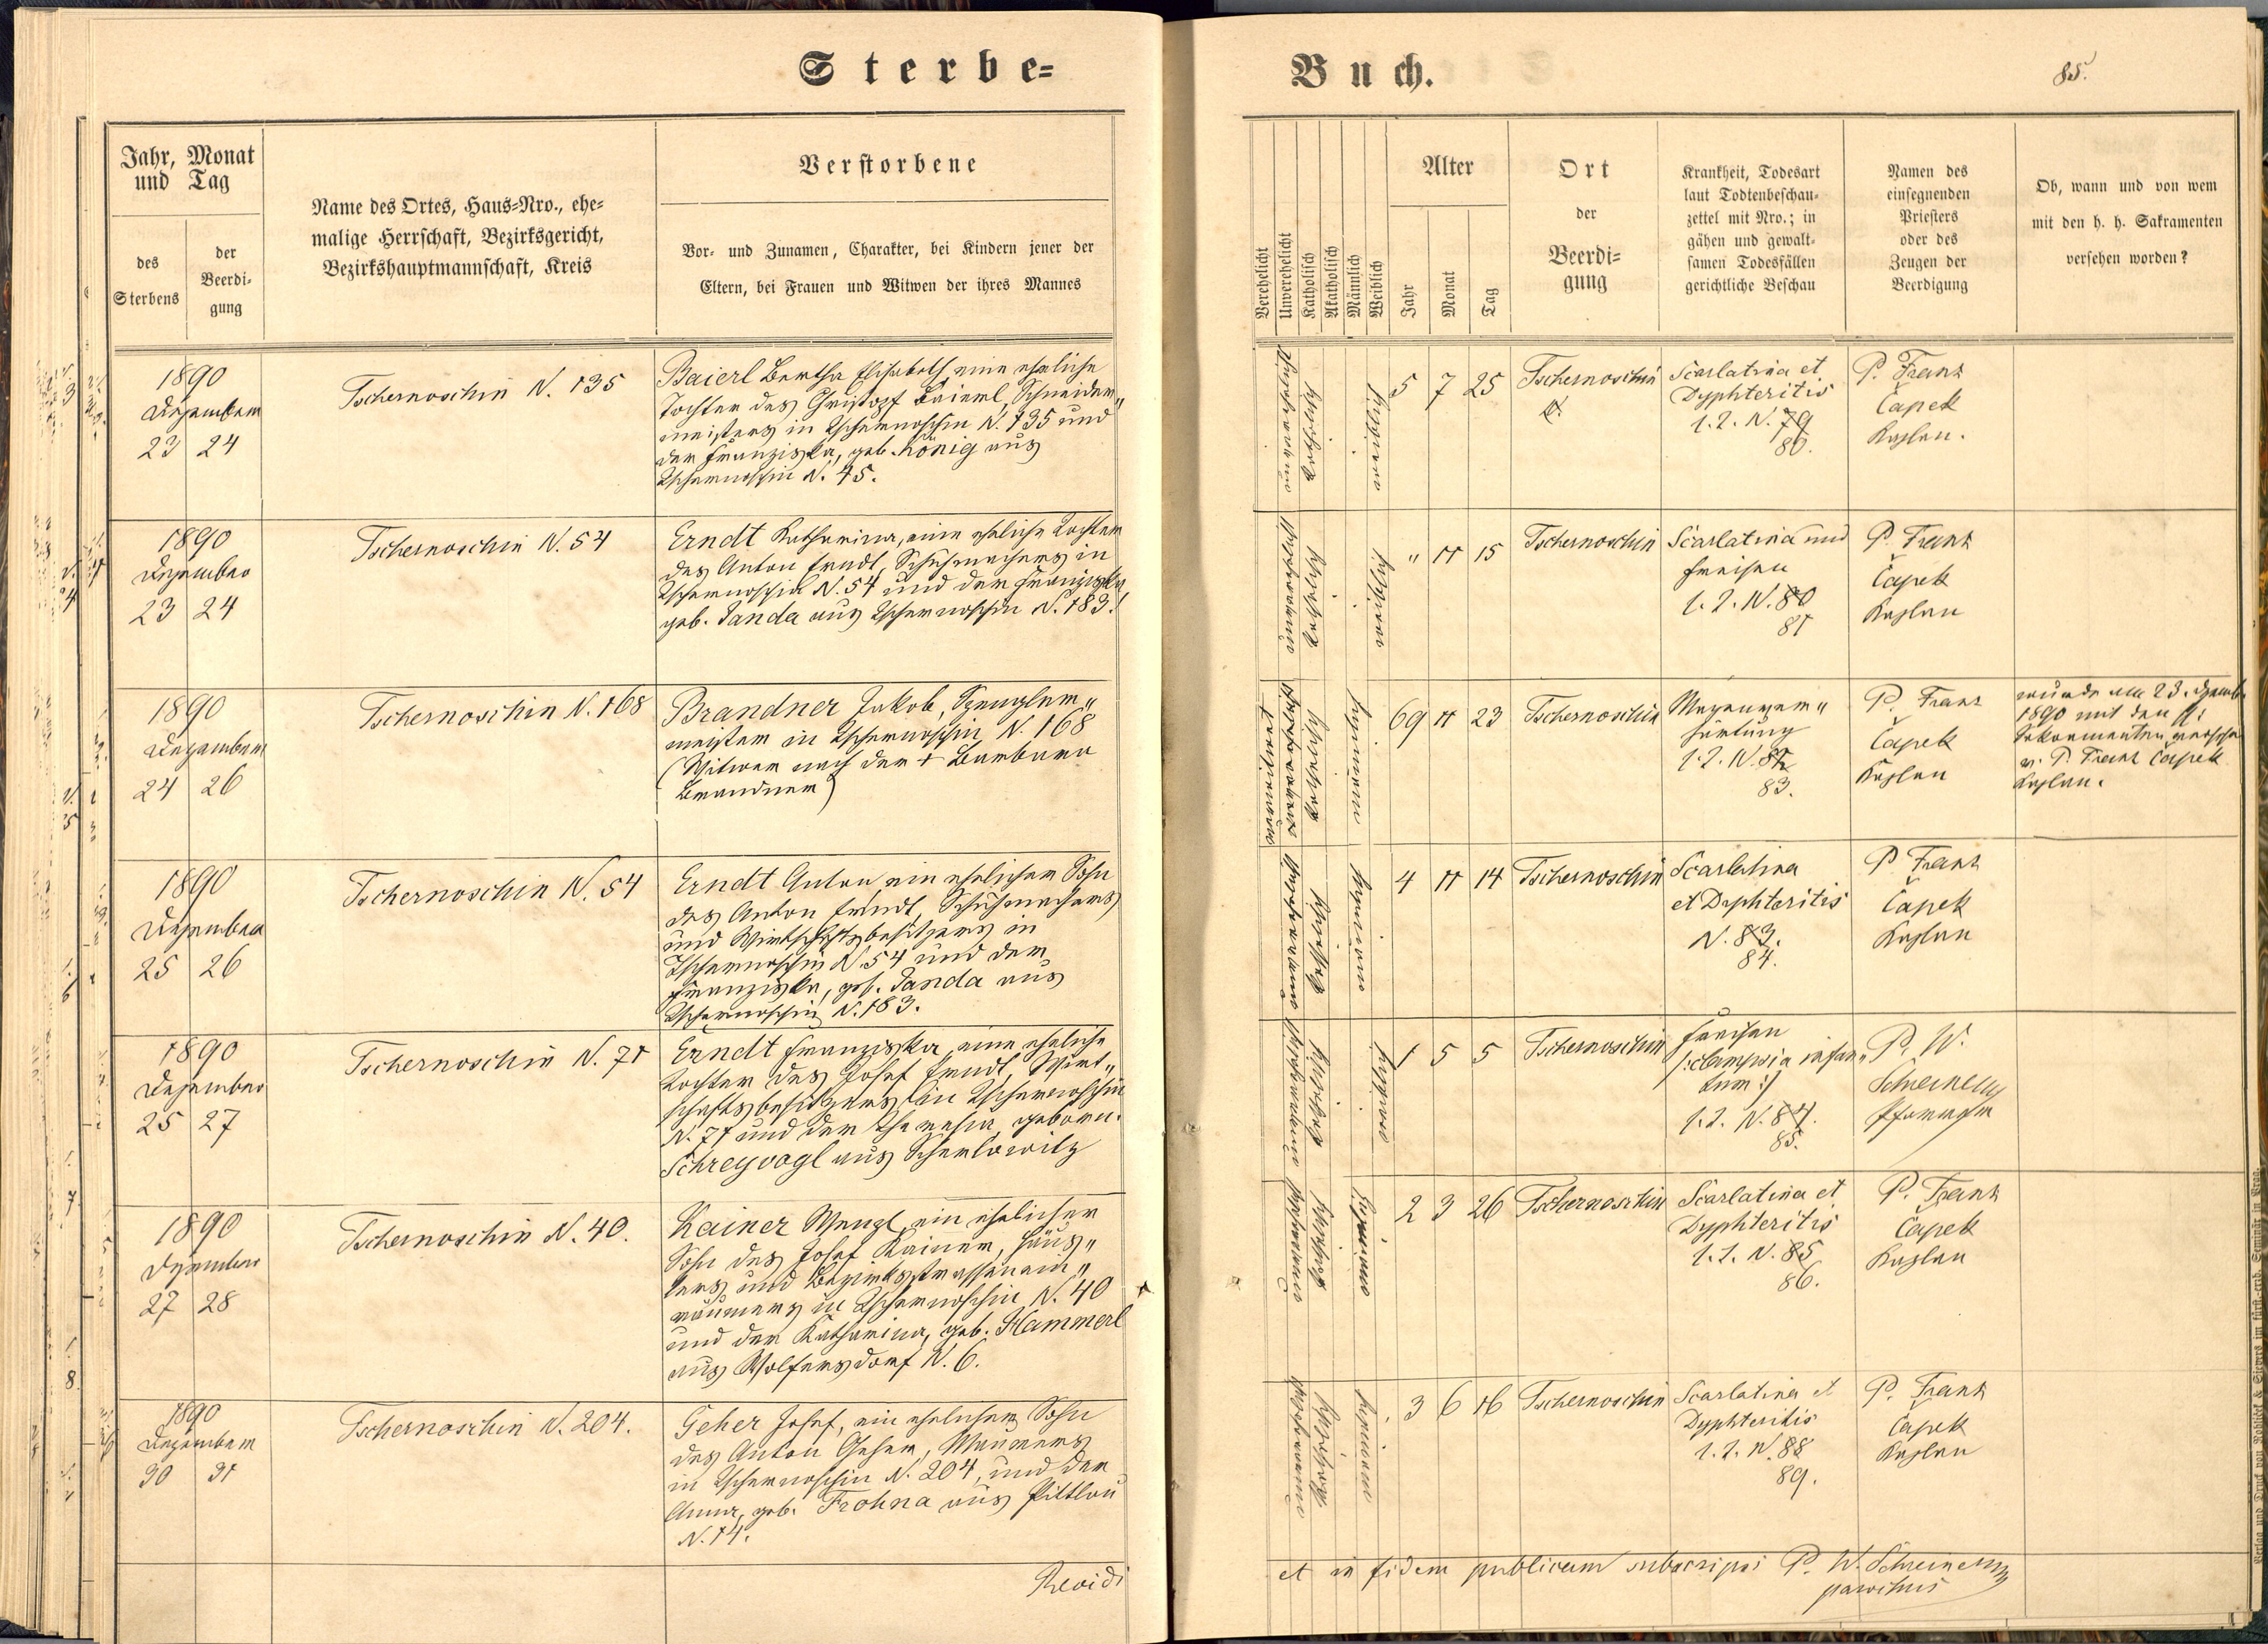 Sterbe=
Buch.
85.
Jahr, Monat
und Tag
des
Sterbens
der
Beerdi-
gung
Name des Ortes, Haus=Nro., ehe=
malige Herrschaft, Bezirksgericht,
Bezirkshauptmannschaft, Kreis
Verstorbene
Vor- und Zunamen, Charakter, bei Kindern jener der
Eltern, bei Frauen und Witwen der ihres Mannes
Verehelicht
Unverehelicht
Katholisch
Akatholisch
Männlich
Weiblich
Alter
Jahr
Monat
Tag
Ort
der
Beerdi=
gung
Krankheit, Todesart
laut Todtenbeschau=
zettel mit Nro.; in
gähen und gewalt=
samen Todesfällen
gerichtliche Beschau
Namen des
einsegnenden
Priesters
oder des
Zeugen der
Beerdigung
Ob, wann und von wem
mit den h. h. Sakramenten
versehen worden?
1890
Dezember
23 24
Tschernoschin N. 135
Baierl Bertha Elisabeth, eine eheliche
Tochter des Christopf Baierl, Schneider„
meisters in Tschernoschin N. 135 und
der Franziska, geb. König aus
Tschernoschin N. 45.
5 7 25
Tschernoschin
Scarlatina et
Dyphteritis
l. Z. N. 79
80.
P. Franz
Čapek
Kaplan.
1890
Dezember
23 24
Tschernoschin N. 54
Erndt Katharina, eine eheliche Tochter
des Anton Erndt, Schuhmachers in
Tschernoschin N. 54 und der Franziska
geb. Janda aus Tschernoschin N. 183.
" 11 15
Tschernoschin
Scarlatina und
Fraisen
l. Z. N. 80
81
P. Franz
Čapek
Kaplan
1890
Dezember
24 26
Tschernoschin N. 168
Brandner Jakob, Spengler„
meister in Tschernoschin N. 168
(Witwer nach der + Barbara
Brandner)
verwitwet
69 11 23
Tschernoschin
Magenver„
härtung
l. Z. N. 82
83.
P. Franz
Čapek
Kaplan
wurde am 23. Dezemb.
1890 mit den hh.
Sakramenten versehen
v. P. Franz Čapek
Kaplan.
1890
Dezember
25 26
Tschernoschin N. 54
Erndt Anton, ein ehelicher Sohn
des Anton Erndt, Schuhmachers
und Wirtschaftsbesitzers in
Tschernoschin N. 54 und der
Franziska, geb. Janda aus
Tschernoschin N. 183.
4 11 14
Tschernoschin
Scarlatina
et Dyphteritis
N. 83.
84.
P. Franz
Čapek
Kaplan
1890
Dezember
25 27
Tschernoschin N. 71
Erndt Franziska, eine eheliche
Tochter des Josef Erndt, Wirt„
schaftsbesitzers in Tschernoschin
N. 71 und der Theresia, geboren.
Schreyvogl aus
1 5 5
Tschernoschin
Fraisen
/:clampsia infan„
tum:/
l. Z. N. 84.
85.
P. W.
Schreiner
Pfarrer
1890
Dezember
27 28
Tschernoschin N. 40.
Kainer Wenzl, ein ehelicher
Sohn des Josef Kainer, Häus„
lers und Bezirksstrassenein„
räumers in Tschernoschin N. 40
und der Katharina, geb. Hammerl
aus Wolfersdorf N. 6.
2 3 26
Tschernoschin
Scarlatina et
Dyphteritis
l. Z. N. 85
86.
P. Franz
Čapek
Kaplan
1890
Dezember
30 31
Tschernoschin N. 204.
Geher Josef, ein ehelicher Sohn
des Anton Geher, Maurers
in Tschernoschin N. 204, und der
Anna, geb. Frohna aus Pittlau
N. 14.
3 6 16
Tschernoschin
Scarlatina et
Dyphteritis
l. Z. N. 88
89.
P. Franz
Čapek
Kaplan
Revidi
et in fidem publicam subscripsi P. W. Schreiner
parochus